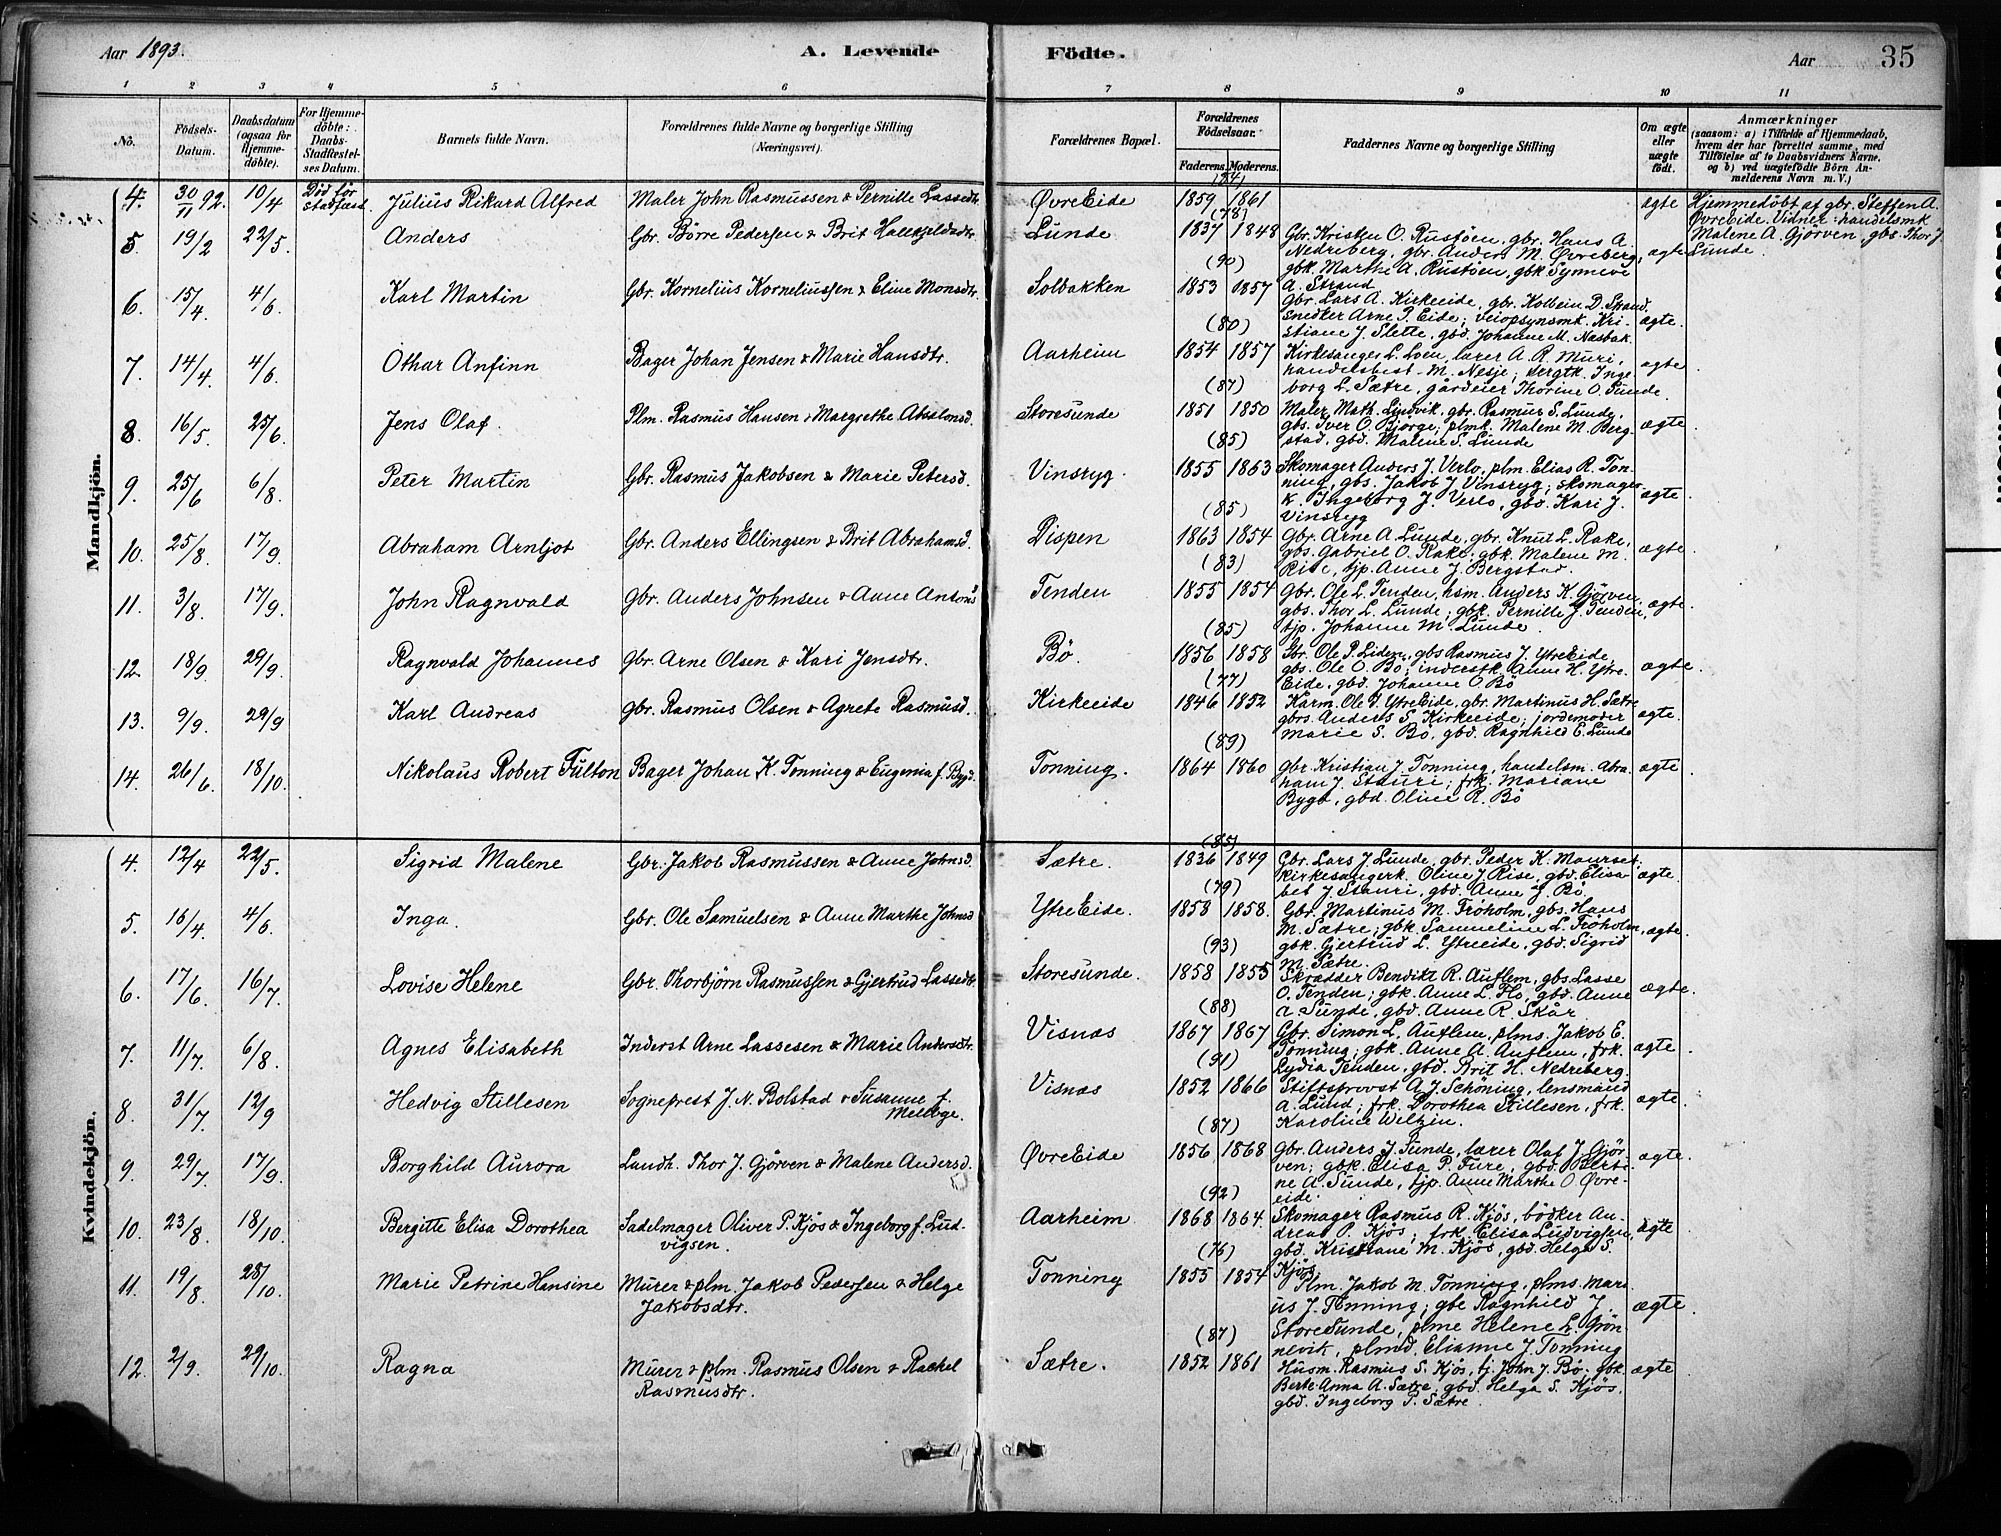 Aar 1893. A. Levende Födte. Aar 35
1 2 3 4 5 6 7 8 9 10 11
No. Födsels-Datum. Daabsdatum (ogsaa for Hjemme-döbte). For Hjemme-döbte: Daabs-Stadfæstel-ses Datum. Barnets fulde Navn. Forældrenes fulde Navne og borgerlige Stilling (Næringsvei). Forældrenes Bopæl. Forældrenes Födselsaar. Faderens. Moderens. Faddernes Navne og borgerlige Stilling Om ægte eller uægte födt. Anmærkninger (saasom: a) i Tilfælde af Hjemmedaab, hvem der har forrettet samme, med Tilföielse af to Daabsvidners Navne, og b) ved uægtefödte Börn An-melderens Navn m. V.)
Mandkjön.
4. 30/11 92. 10/4 Död för stadfæst. Julius Rikard Alfred Maler John Rasmussen & Pernille Lassedtr. ØvreEide (84) 1859 1861 ægte Hjemmedöbt af gbr. Steffen A. ØvreEide. Vidner: handelsmk Malene A. Gjörven, gbs. Thor J. Lunde.
5. 19/2 22/5. Anders Gbr. Börre Pedersen & Brit Hallkjeldsdtr. Lunde (78) 1837 1848 Gbr. Kristen O. Rustöen, gbr. Hans A.
Nedreberg, gbr. Anders M. Øvreberg, ægte
gbk. Marthe A. Rustöen, gbk Synneve
A. Strand
6. 15/4. 4/6. Karl Martin Gbr. Kornelius Korneliussen & Eline Monsdtr. Solbakken (90) 1853 1857
gbr. Lars A. Kirkeeide, gbr. Kolbein D. Strand,
snedker Arne P. Eide; veiopsynsmk. Kri- ægte.
stiane J. Slette, gbd. Johanne M. Næsbak.
7. 14/4. 4/6. Othar Anfinn Bager Johan Jensen & Marie Hansdtr. Aarheim (80) 1854 1857 Kirkesanger L. Loen, lærer A. R. Muri,
handelsbest. M. Nesje; sergtk. Inge- ægte
borg L. Sætre, gårdeier Thorine O. Sunde.
8. 16/5. 25/6. Jens Olaf. Plm. Rasmus Hansen & Margrethe Absalonsd. Storesunde (87) 1851 1850 Maler Math. Lindvik, gbr. Rasmus S. Lunde,
gbs. Iver O. Bjørge; plmk. Malene M. Berg- ægte.
stad, gbd. Malene S. Lunde
9. 25/6 6/8. Peter Martin Gbr. Rasmus Jakobsen & Marie Petersd. Vinsryg. (85) 1855 1863 Skomager Anders J. Verlo, plm. Elias R. Ton-
ning, gbs. Jakob J. Vinsryg; skomager- ægte.
k. Ingeborg J. Verlo, gbd. Kari J.
Vinsryg
10. 25/8. 17/9. Abraham Arnljot Gbr. Anders Ellingsen & Brit Abrahamsd. Dispen (85) 1863 1854 Gbr. Arne A. Lunde, gbr. Knut L. Rake,
gbs. Gabriel O. Rake; gbk. Malene M. ægte.
Rise, tjp. Anne J. Bergstad.
11. 3/8. 17/9. John Ragnvald Gbr. Anders Johnsen & Anne Antons Tenden (83) 1855 1854 Gbr. Ole L. Tenden, hsm. Anders K. Gjörven,
gbs. Thor L. Lunde; gbk. Pernille J. Tenden, ægte.
tjp. Johanne M. Lunde.
12. 18/9. 29/9. Ragnvald Johannes Gbr. Arne Olsen & Kari Jensdtr. Bö. (85) 1856 1858 Gbr. Ole P. Liden, gbs Rasmus J. YtreEide,
gbs. Ole O. Bö; inderstk. Anne H. Ytre- ægte.
Eide, gbd. Johanne O Bö
13. 9/9. 29/9 Karl Andreas Gbr. Rasmus Olsen & Agnete Rasmusd. Kirkeeide (77) 1846 1852 Karm. Ole J. YtreEide, gbr. Martinus H. Sætre
gbrs. Anders S. Kirkeeide; jordemoder ægte.
Marie S. Bö, gbd. Ragnhild E. Lunde
14. 26/6. 18/10. Nikolaus Robert Fulton Bager Johan K. Tonning & Eugenia f. Bygd. Tonning. (89) 1864 1860 gbr. Kristian J. Tonning, handelsm. Abra- ægte
ham J. Stauri; frk. Mariane
Bygd, gbd. Oline R. Bö
Kvindekjön.
4. 12/4 22/5. Sigrid Malene Gbr. Jakob Rasmussen & Anne Johnsd. Sætre. (85) 1836 1849 Gbr. Lars J. Lunde, gbr. Peder K. Maurset.
kirkesangerk. Oline J. Rise, gbd. Elisa- ægte.
bet J. Stauri, gbd. Anne J. Bö.
5. 16/4. 4/6. Inga. Gbr. Ole Samuelsen & Anne Marthe Johnsd YtreEide. (79) 1858 1858. Gbr. Martinus M. Fröholm, gbs. Hans
M. Sætre; gbk Sammeline L. Fröholm, ægte.
gbk. Gjertrud L. Ytreeide, gbd. Sigrid
M. Sætre.
6. 17/6. 16/7. Lovise Helene Gbr. Thorbjörn Rasmussen & Gjertrud Lassedtr. Storesunde. (93) 1858 1855 Skrædder Bendikt R. Auflem, gbs. Lasse
O. Tenden; gbk. Anne L. Flo, gbd. Anne ægte.
A. Sunde, gbd. Anne R. Skår
7. 11/7. 6/8. Agnes Elisabeth Inderst Arne Lassesen & Marie Andersdtr. Visnæs (88) 1867 1867 Gbr. Simon L. Auflem, plms. Jakob E.
Tonning; gbk. Anne A. Auflem, frk. ægte.
Lydia Tenden, gbd. Brit H. Nedreberg.
8. 31/7. 12/9 Hedvig Stillesen Sogneprest J. N. Bolstad & Susanne f. Meltvge. Visnæs (91) 1852 1866 Stiftsprovst A. J. Schöning, lensmand
A. Lund; frk. Dorothea Stillesen, frk. ægte.
Karoline Weltzin.
9. 29/7. 17/9. Borghild Aurora Landh. Thor J. Gjörven & Malene Andersd. ØvreEide (87) 1856 1868 Gbr. Anders J. Sunde, lærer Olaf J. Gjör-
ven; gbk. Elisa P. Fure, gbd. Berti- ægte.
ne A. Sunde, tjp. Anne Marthe O Øvre-
eide.
10. 23/8. 18/10. Bergitte Elisa Dorothea Sadelmager Oliver P. Kjös & Ingeborg f. Lud-vigsen. Aarheim (92) 1868 1864. Skomager Rasmus R. Kjös, bödker An-
dreas P. Kjös; frk. Elisa Ludvigsen, ægte
gbd. Kristiane M. Kjös, gbd. Helga S.
Kjös.
11. 19/8. 28/10. Marie Petrine Hansine Murer & plm. Jakob Pedersen & Helge Jakobsdtr. Tonning (76) 1855 1854 Plm. Jakob M. Tonning, plms. Mari-
us J. Tonning; gbe Ragnhild J. ægte.
StoreSunde, plme Helene L. Grön-
nevik, plmd. Elianne J. Tonning
12. 2/9. 29/10. Ragna Murer & plm. Rasmus Olsen & Rachel Rasmusdtr. Sætre. (87) 1852 1861 Husm. Rasmus S. Kjös, tj. John J. Bö, gbk. ægte
Berte Anna A. Sætre, gbd. Helga S. Kjös,
gbd. Ingeborg P. Sætre.